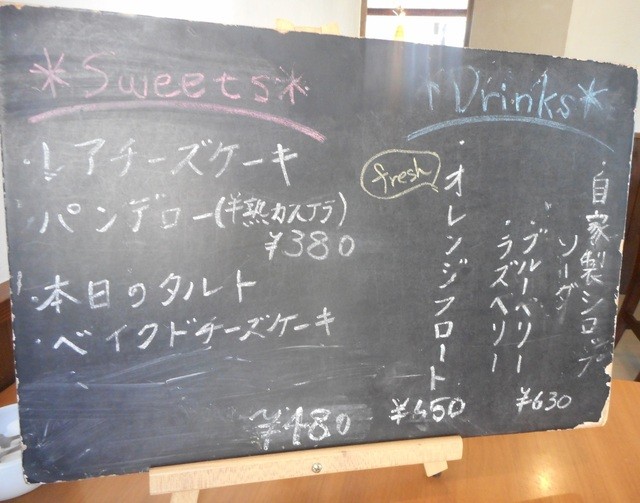 *Sweets*
・レアチーズケーキ
・パンデロー(半熟カステラ)
¥380
・本日のタルト
・ベイクドチーズケーキ
¥480
*Drinks*
・自家製シロップ
ソーダ
・ブルーベリー
・ラズベリー
¥630
fresh
・オレンジフロート
¥650